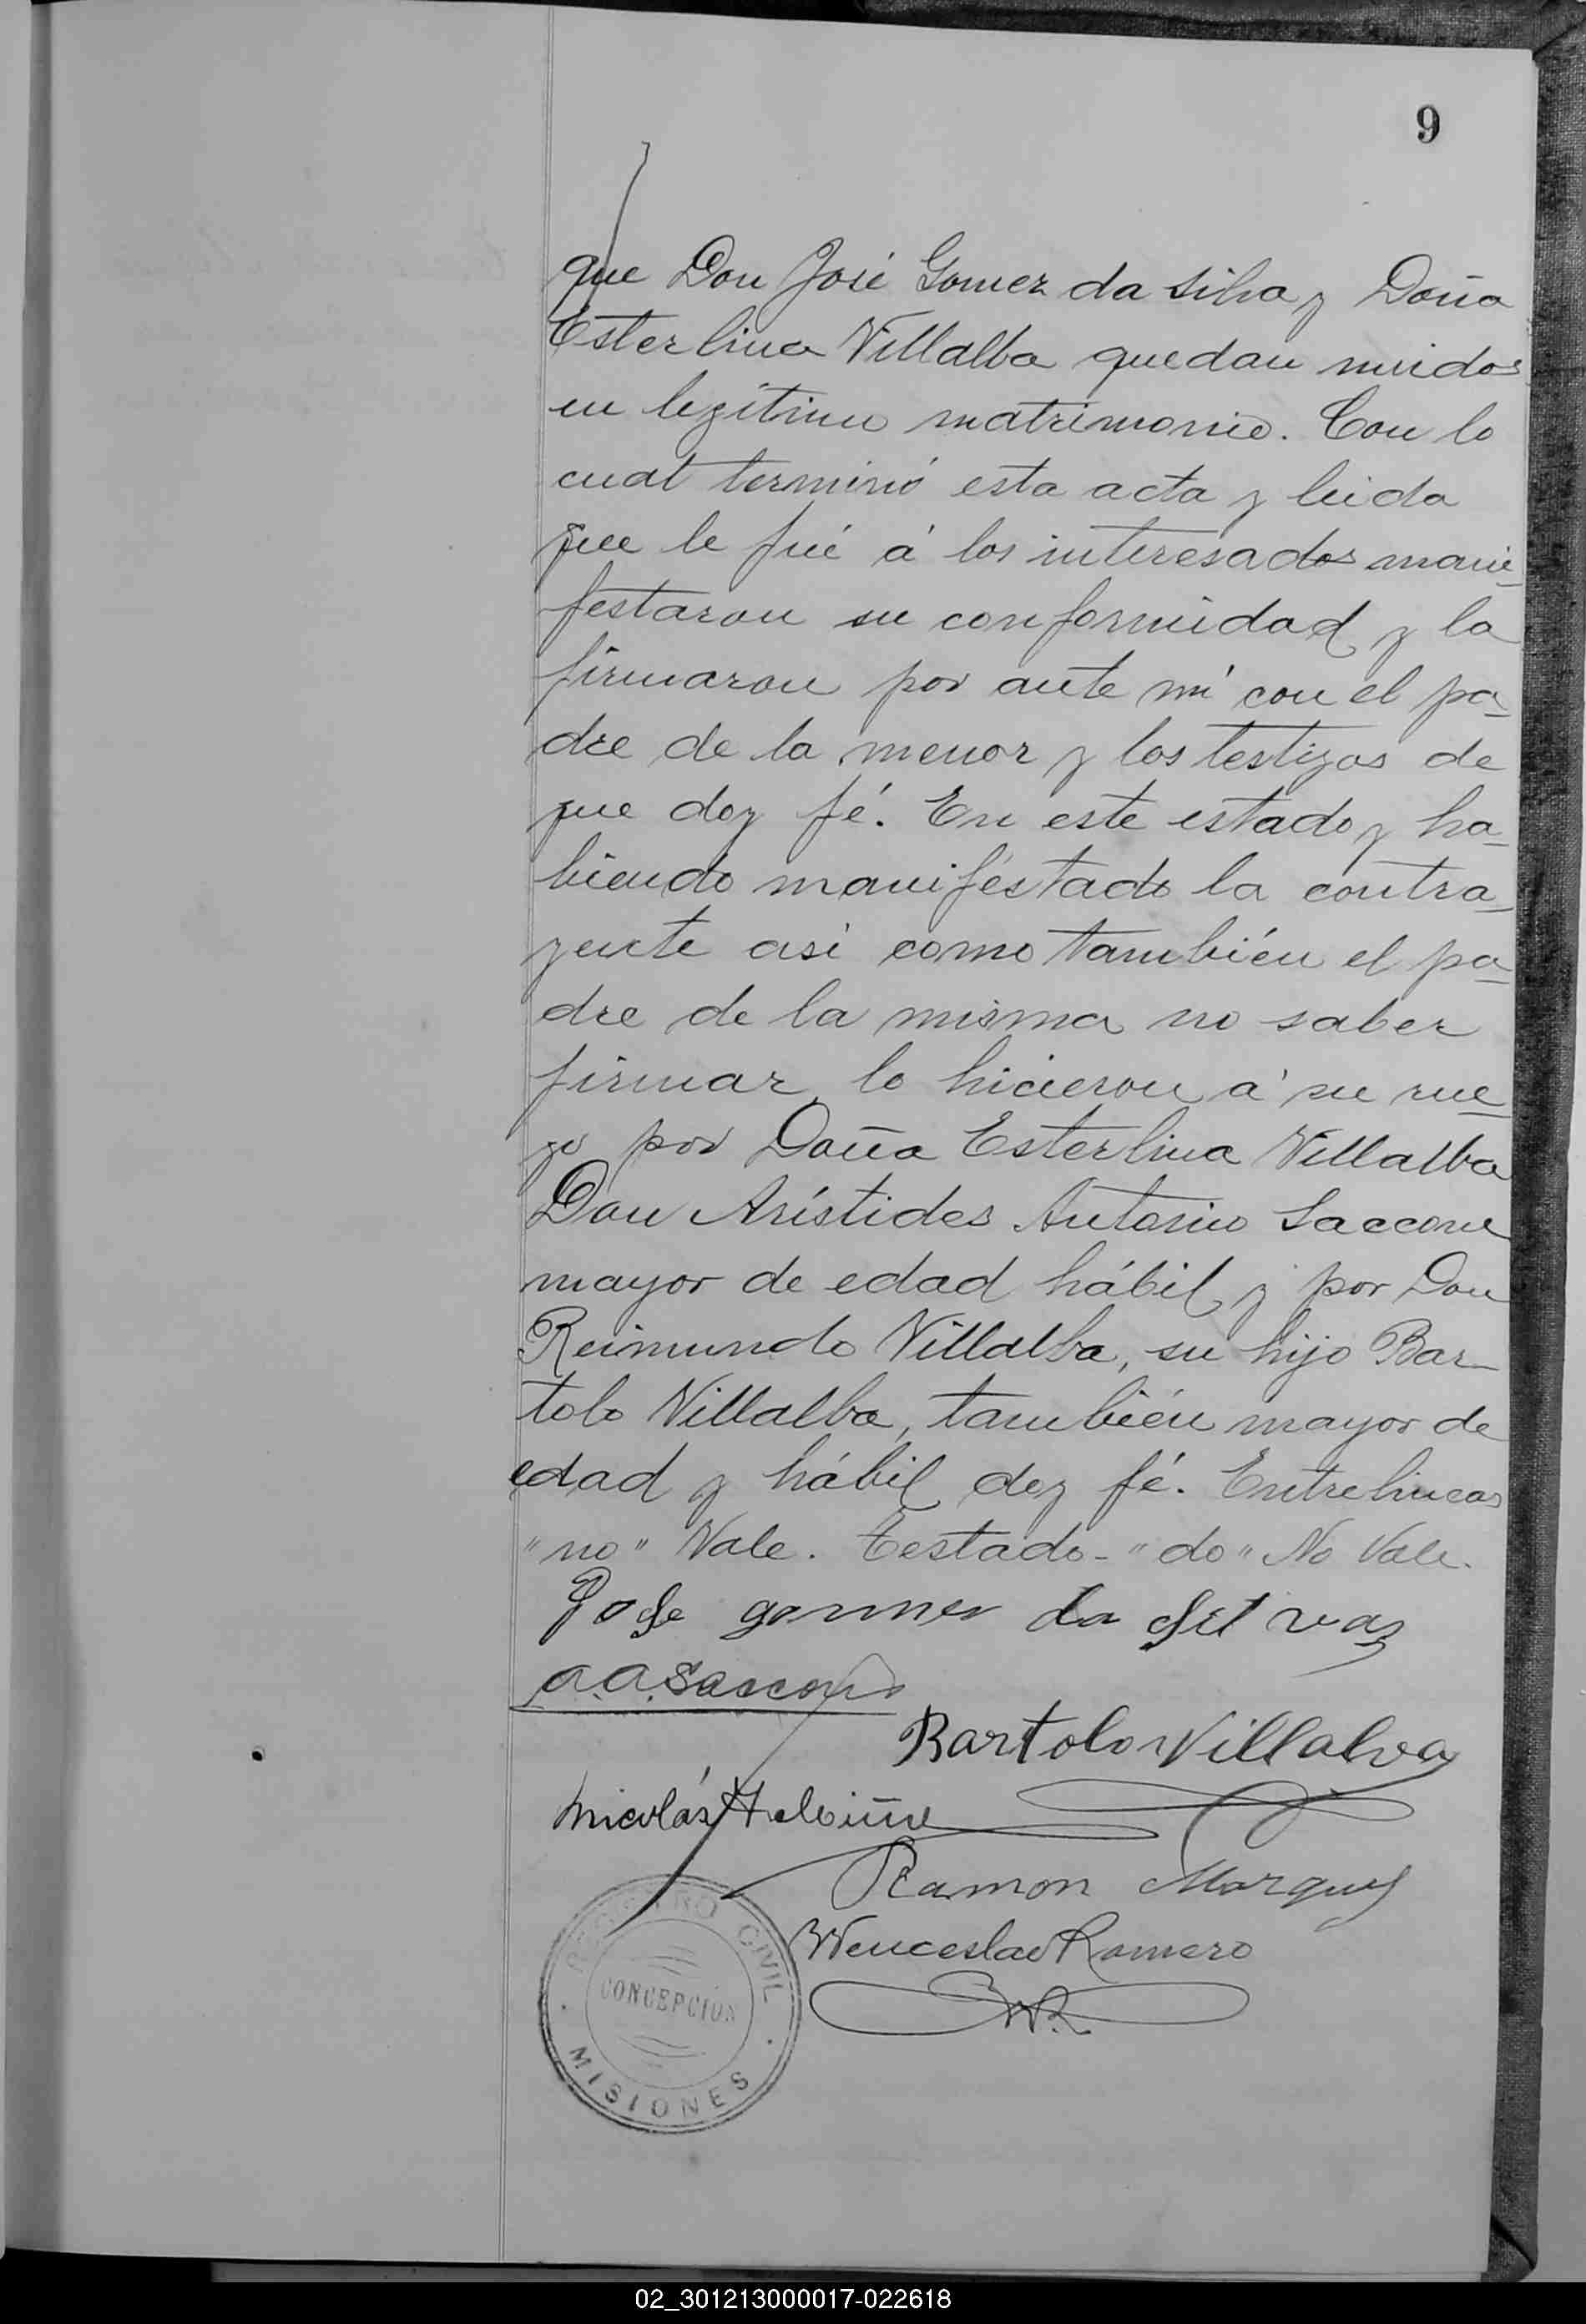 9
que Don José Gomez da Silva y Doña
Esterlina Villalba quedan unidos
en legítimo matrimonio. Con lo
cual terminó esta acta y leida
que le fué á los interesados mani-
festaron su conformidad y la
firmaron por ante mí con el pa-
dre de la menor y los testigos de
que doy fé. En este estado y ha-
biendo manifestado la contra-
yente asi como también el pa-
dre de la misma no saber
firmar, lo hicieron á su rue-
go por Doña Esterlina Villalba
Don Arístides Antonio Saccone
mayor de edad hábil y por Don
Reimundo Villalba, su hijo Bar-
tolo Villalba, también mayor de
edad y hábil doy fé. Entrelineas
"no" Vale. Testado - "do" No Vale.
Jose gommes da Silva
A. A. Saccone
Bartolo Villalva
Nicolás
Ramon Marques
Wenceslao Romero
WR
REGISTRO CIVIL
CONCEPCIÓN
MISIONES
02_301213000017-022618